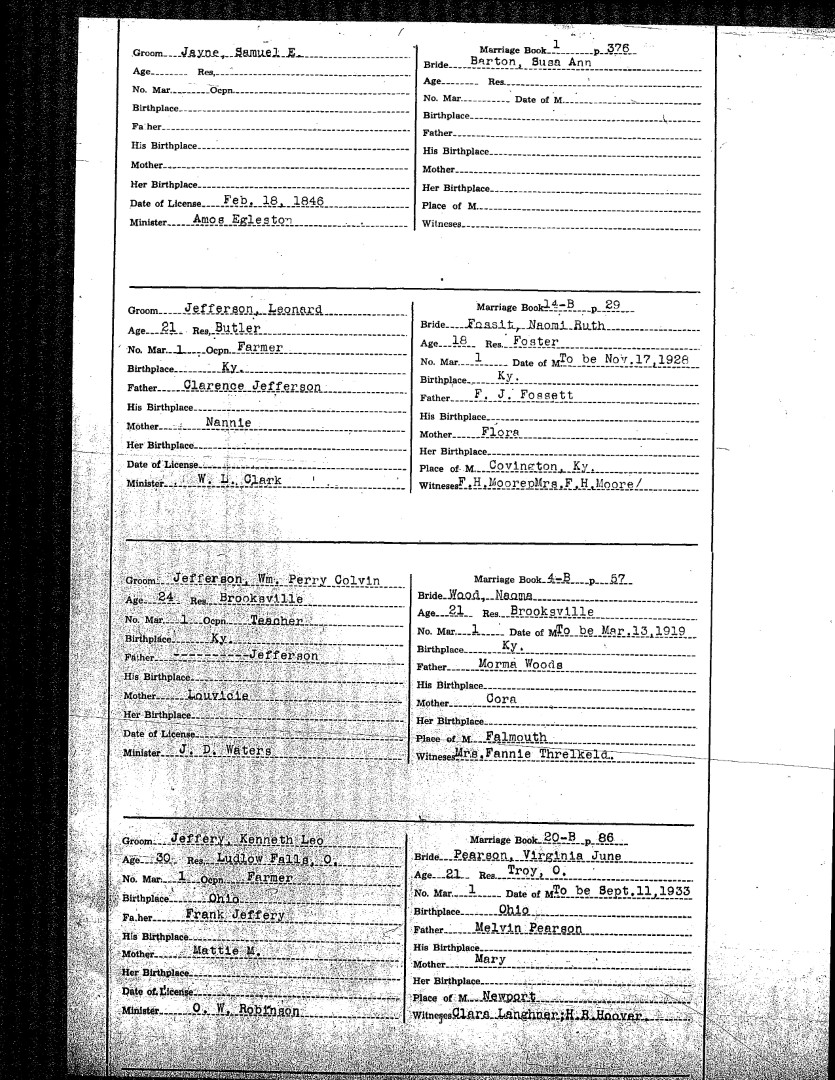 Groom Jayne, Samuel E.
Age Res,
No. Mar. Ocpn.
Birthplace
Fa her
His Birthplace
Mother
Her Birthplace
Date of License Feb. 18, 1846
Minister Amos Egleston
Marriage Book 1 p. 376
Bride Barton, Susa Ann
Age Res.
No. Mar. Date of M.
Birthplace
Father
His Birthplace
Mother
Her Birthplace
Place of M.
Witnesses
Groom Jefferson, Leonard
Age 21 Res, Butler
No. Mar. 1 Ocpn. Farmer
Birthplace Ky.
Father Clarence Jefferson
His Birthplace
Mother Nannie
Her Birthplace
Date of License
Minister W. L. Clark
Marriage Book 14-B p. 29
Bride Fossit, Naomi Ruth
Age 18 Res. Foster
No. Mar. 1 Date of M To be Nov.17,1928
Birthplace Ky.
Father F. J. Fossett
His Birthplace
Mother Flora
Her Birthplace
Place of M. Covington, Ky.
Witnesses F.H.MoorepMrs.F.H.Moore/
Groom Jefferson, Wm. Perry Colvin
Age 24 Res. Brooksville
No. Mar. 1 Ocpn. Teacher
Birthplace Ky.
Father ----------Jefferson
His Birthplace
Mother Louvicie
Her Birthplace
Date of License
Minister J. D. Waters
Marriage Book 4-B p. 57
Bride Wood, Naoma
Age 21 Res. Brooksville
No. Mar. 1 Date of M To be Mar.13,1919
Birthplace Ky.
Father Morma Woods
His Birthplace
Mother Cora
Her Birthplace
Place of M. Falmouth
Witnesses Mrs.Fannie Threlkeld.
Groom Jeffery, Kenneth Leo
Age 30 Res. Ludlow Falls, O.
No. Mar. 1 Ocpn. Farmer
Birthplace Ohio
Fa.her Frank Jeffery
His Birthplace
Mother Mattie M.
Her Birthplace
Date of License
Minister O. W. Robinson
Marriage Book 20-B p. 86
Bride Pearson, Virginia June
Age 21 Res. Troy, O.
No. Mar. 1 Date of M To be Sept.11,1933
Birthplace Ohio
Father Melvin Pearson
His Birthplace
Mother Mary
Her Birthplace
Place of M. Newport
Witnesses Clara Langhner;H.B.Hoover.